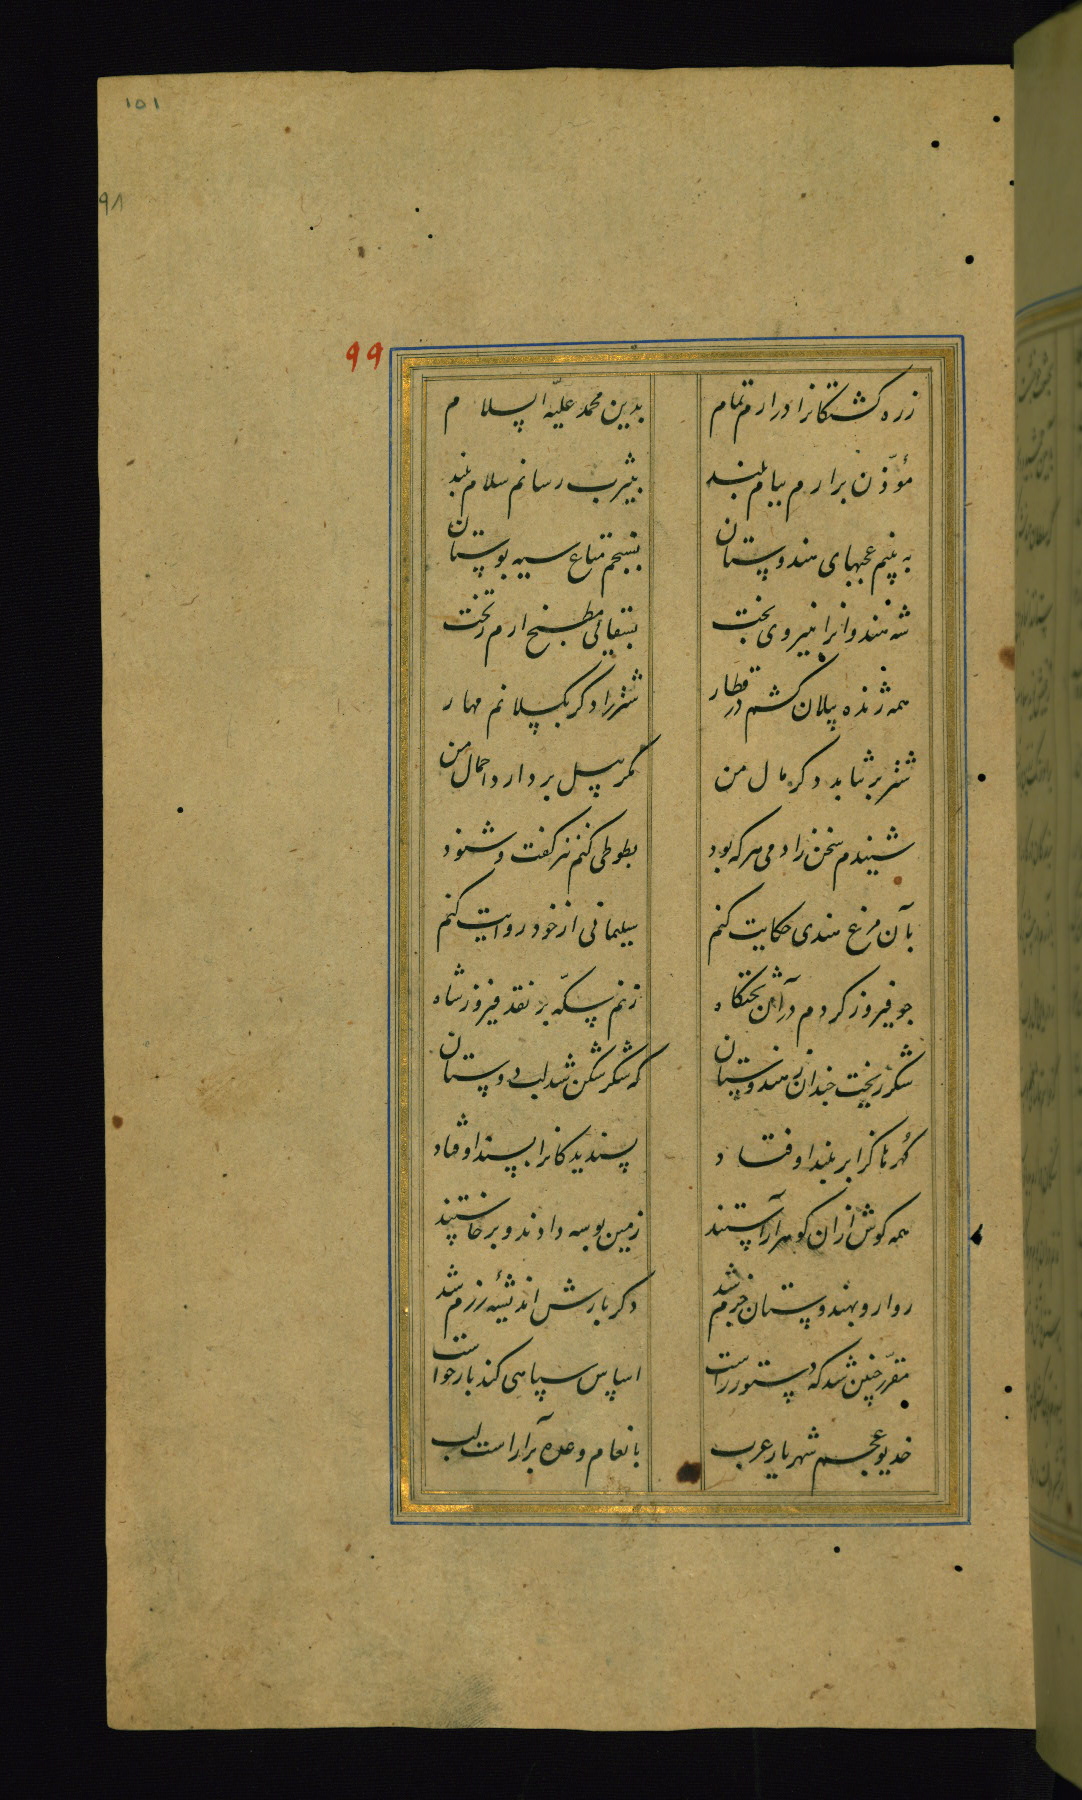 ۱۵۱
۹۸
۹۹
زره کشتکانرا درارم تمام بدین محمد علیه السلام
مؤذن برارم ببام بلند بیثرب رسانم سلام بلند
به بینم عجبهای هندوستان بسنجم متاع سیه بوستان
شه هندوانرا بنیروی بخت ببقالی مطبخ ارم رتخت
همه ژنده پیلان کشم در قطار شتر را دکر بکسلانم مهار
شتر بر نتابد دکر مال من مکر پیل بردارد احمال من
شنیدم سخن زادمی هر که بود بطوطی کنم نیز کفت و شنود
بآن مرغ هندی حکایت کنم سلیمانی از خود روایت کنم
جو فیروز کردم درآن تختکاه زنم سکه بر نقد فیروز شاه
شکر ریخت چندان ز هندوستان که شکر شکن شد لب دوستان
کهرها کزابر بلند اوفتاد پسندیدکانرا پسند اوفتاد
همه کوش ازان کوهر آراستند زمین بوسه دادند و برخاستند
روارو بهندوستان جزم شد دکر بارش اندیشه رزم شد
مقرر چنین شد که دستور راست اساس سپاهی کند بازخواست
خدیو عجم شهریار عرب بانعام وعده برآراست لب